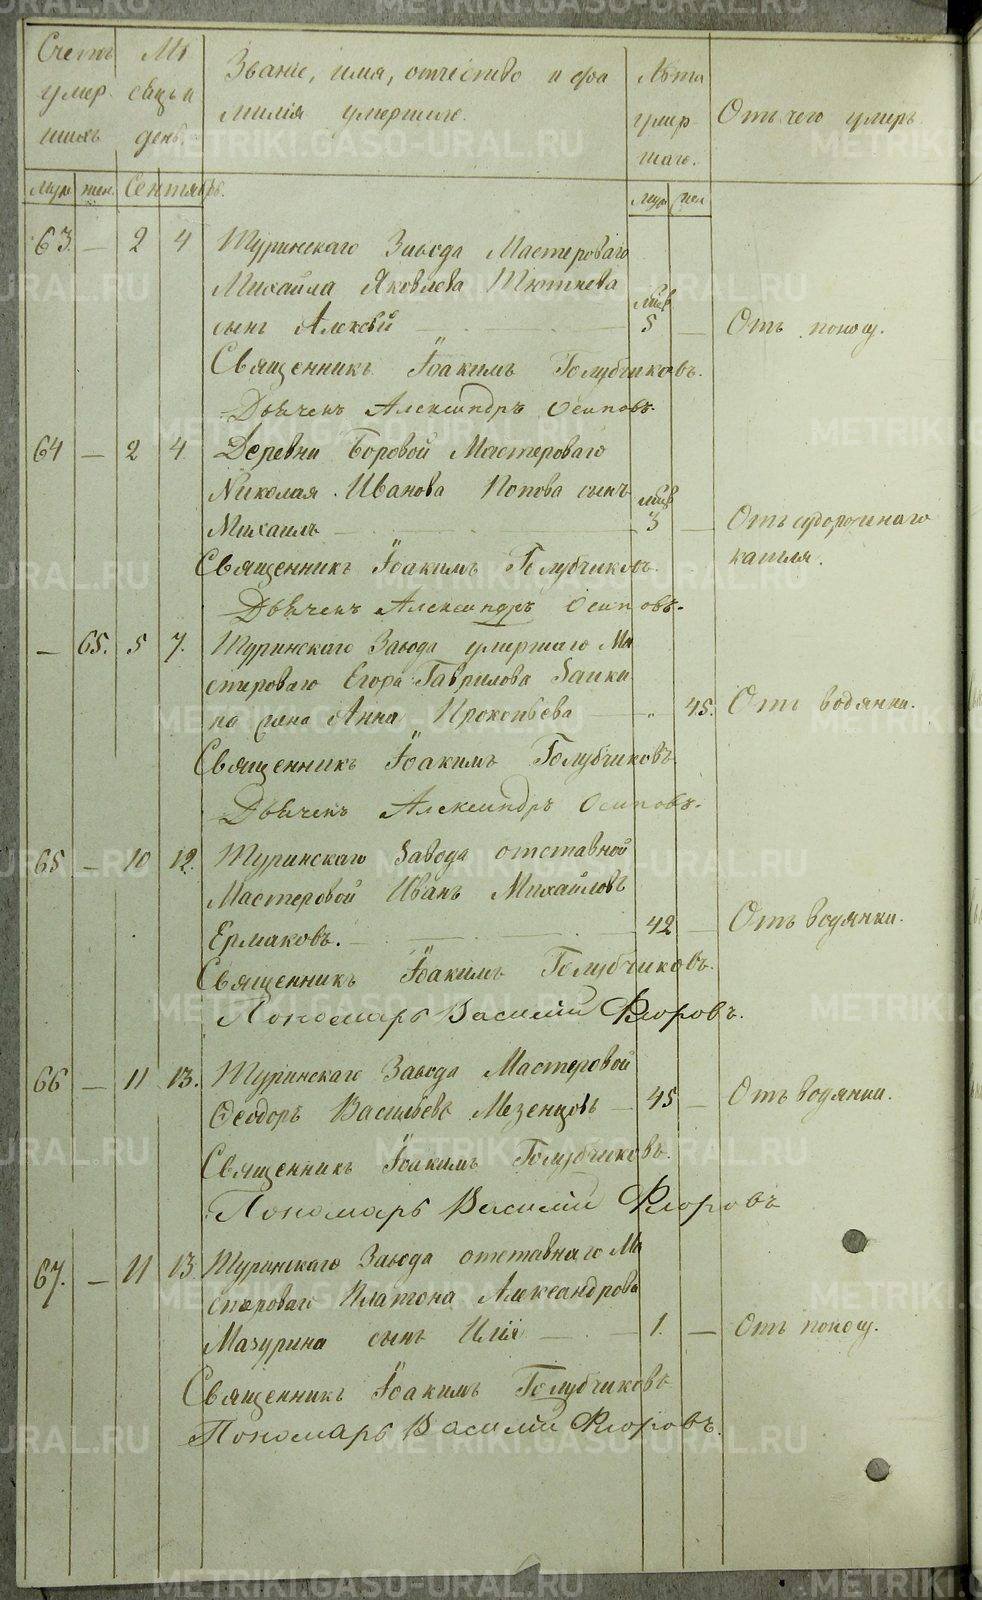 Счетъ умер шихъ
Мѣ сяцъ и день.
Званіе, имя, отчество и фа
милія умершаго.
Лѣта умер шаго.
Отъ чего умеръ.
муж. жен. Сентябрь. муж. жен.
63. — 2 4 Туринскаго Завода Мастероваго
Михайла Яковлева Тютнева
сынъ Алексѣй — 5 — Отъ поносу.
Священникъ Іоакимъ Голубчиковъ.
Дьячекъ Александръ Осиповъ.
64 — 2 4 Деревни Боровой Мастероваго
Николая Иванова Попова сынъ
Михаилъ — 3 — Отъ судорожнаго
кашля.
Священникъ Іоакимъ Голубчиковъ.
Дьячекъ Александръ Осиповъ.
— 65. 5 7. Туринскаго Завода умершаго Ма
стероваго Егора Гаврилова
на жена Анна Прокопьева — „ 45. Отъ водянки.
Священникъ Іоакимъ Голубчиковъ
Дьячекъ Александръ Осиповъ.
65 — 10 12. Туринскаго Завода отставной
Мастеровой Иванъ Михайловъ
Ермаковъ. — 42 — Отъ водянки.
Священникъ Іоакимъ Голубчиковъ.
Пономарь Василій Флоровъ.
66 — 11 13. Туринскаго Завода Мастеровой
Ѳеодоръ Васильевъ Мезенцовъ — 45 — Отъ водянки.
Священникъ Іоакимъ Голубчиковъ.
Пономарь Василій Флоровъ
67. — 11 13 Туринскаго Завода отставнаго Ма
стероваго Платона Александрова
Мазурина сынъ Илія — 1. — Отъ поносу.
Священникъ Іоакимъ Голубчиковъ
Пономарь Василій Флоровъ.
METRIKI.GASO-URAL.RU